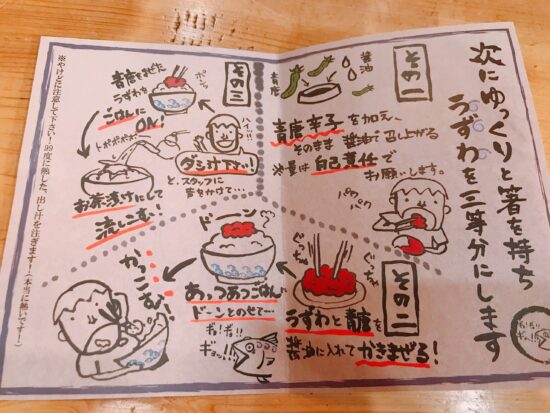 次にゆっくりと箸を持ち
うずわを三等分にします
その一
醤油
青唐
青唐辛子を加え、
そのまま醤油で召し上がる
※量は自己責任で
お願いします。
パク
パク
その二
ぐっちゃ
ぐっちゃ
うずわと青唐を
醤油に入れてかきまぜる!
ドーン
あっつあつごはんに
ドーンとのせて…
かっこむ!!
ギョ!ギョ!!
ギョッ!!
その三
青唐をまぜた
うずわを
ポン
ごはんに
ON!
ハーイッ!!
ダシ汁下さい!
と、スタッフに
声をかけて…
トポポポポ
お茶漬けにして
流しこむ!!
※やけどに注意して下さい!99度に熱した、出し汁を注ぎます!(本当に熱いです!)